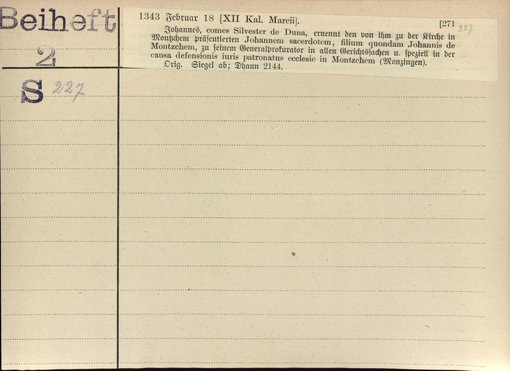 Beiheft
2
S 227
1343 Februar 18 [XII Kal. Marcii]. [271
Johannes, comes Silvester de Duna, ernennt den von ihm zu der Kirche in
Montzchem präsentierten Johannem sacerdotem, filium quondam Johannis de
Montzchem, zu seinem Generalprokurator in allen Gerichtssachen u. speziell in der
causa defensionis iuris patronatus ecclesie in Montzchem (Monzingen).
Orig. Siegel ab; Dhaun 2144.